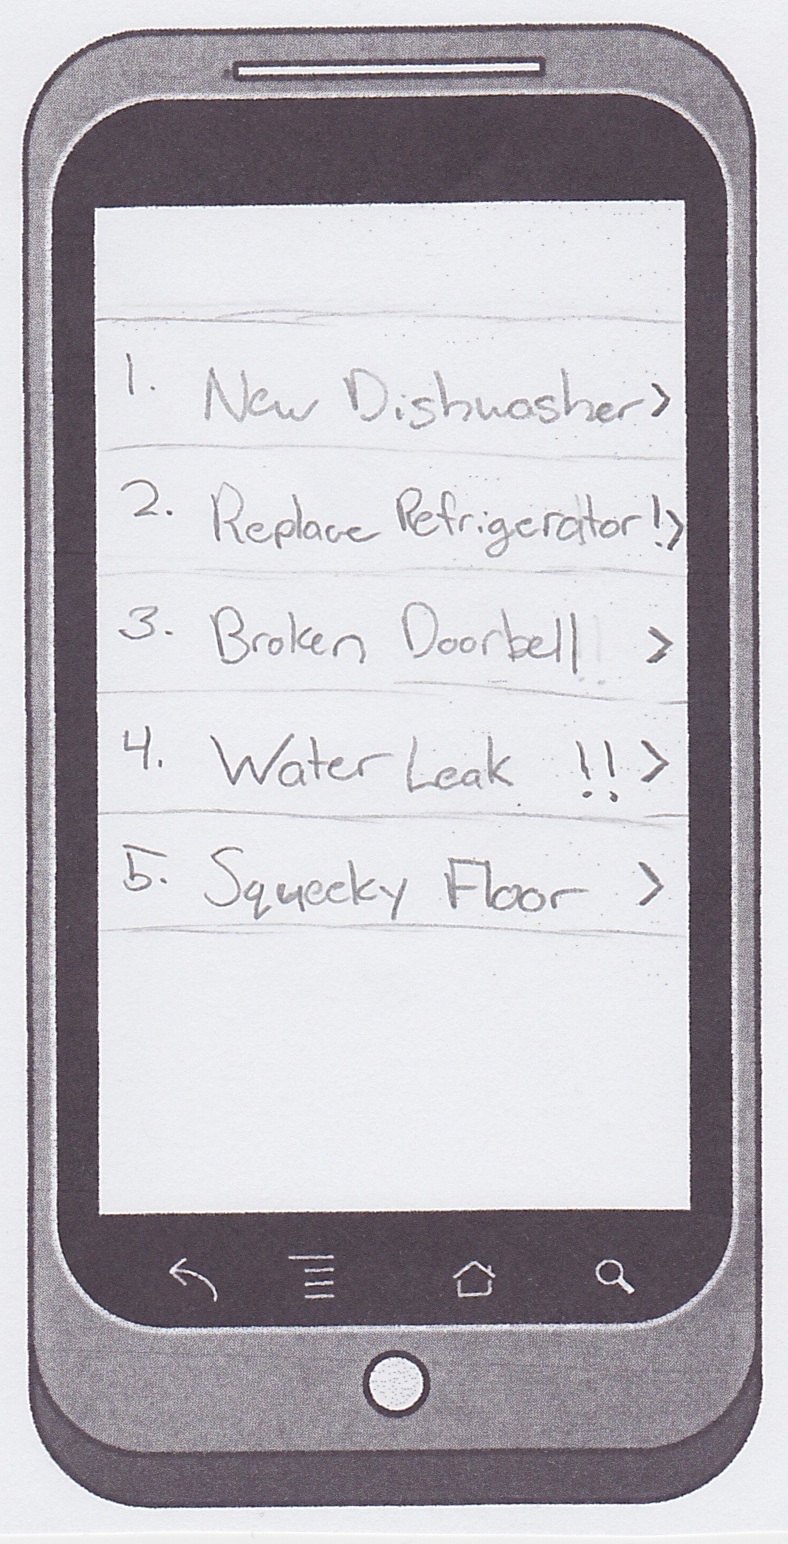 1. New Dishwasher >
2. Replace Refrigerator! >
3. Broken Doorbell >
4. Water Leak !! >
5. Squeeky Floor >